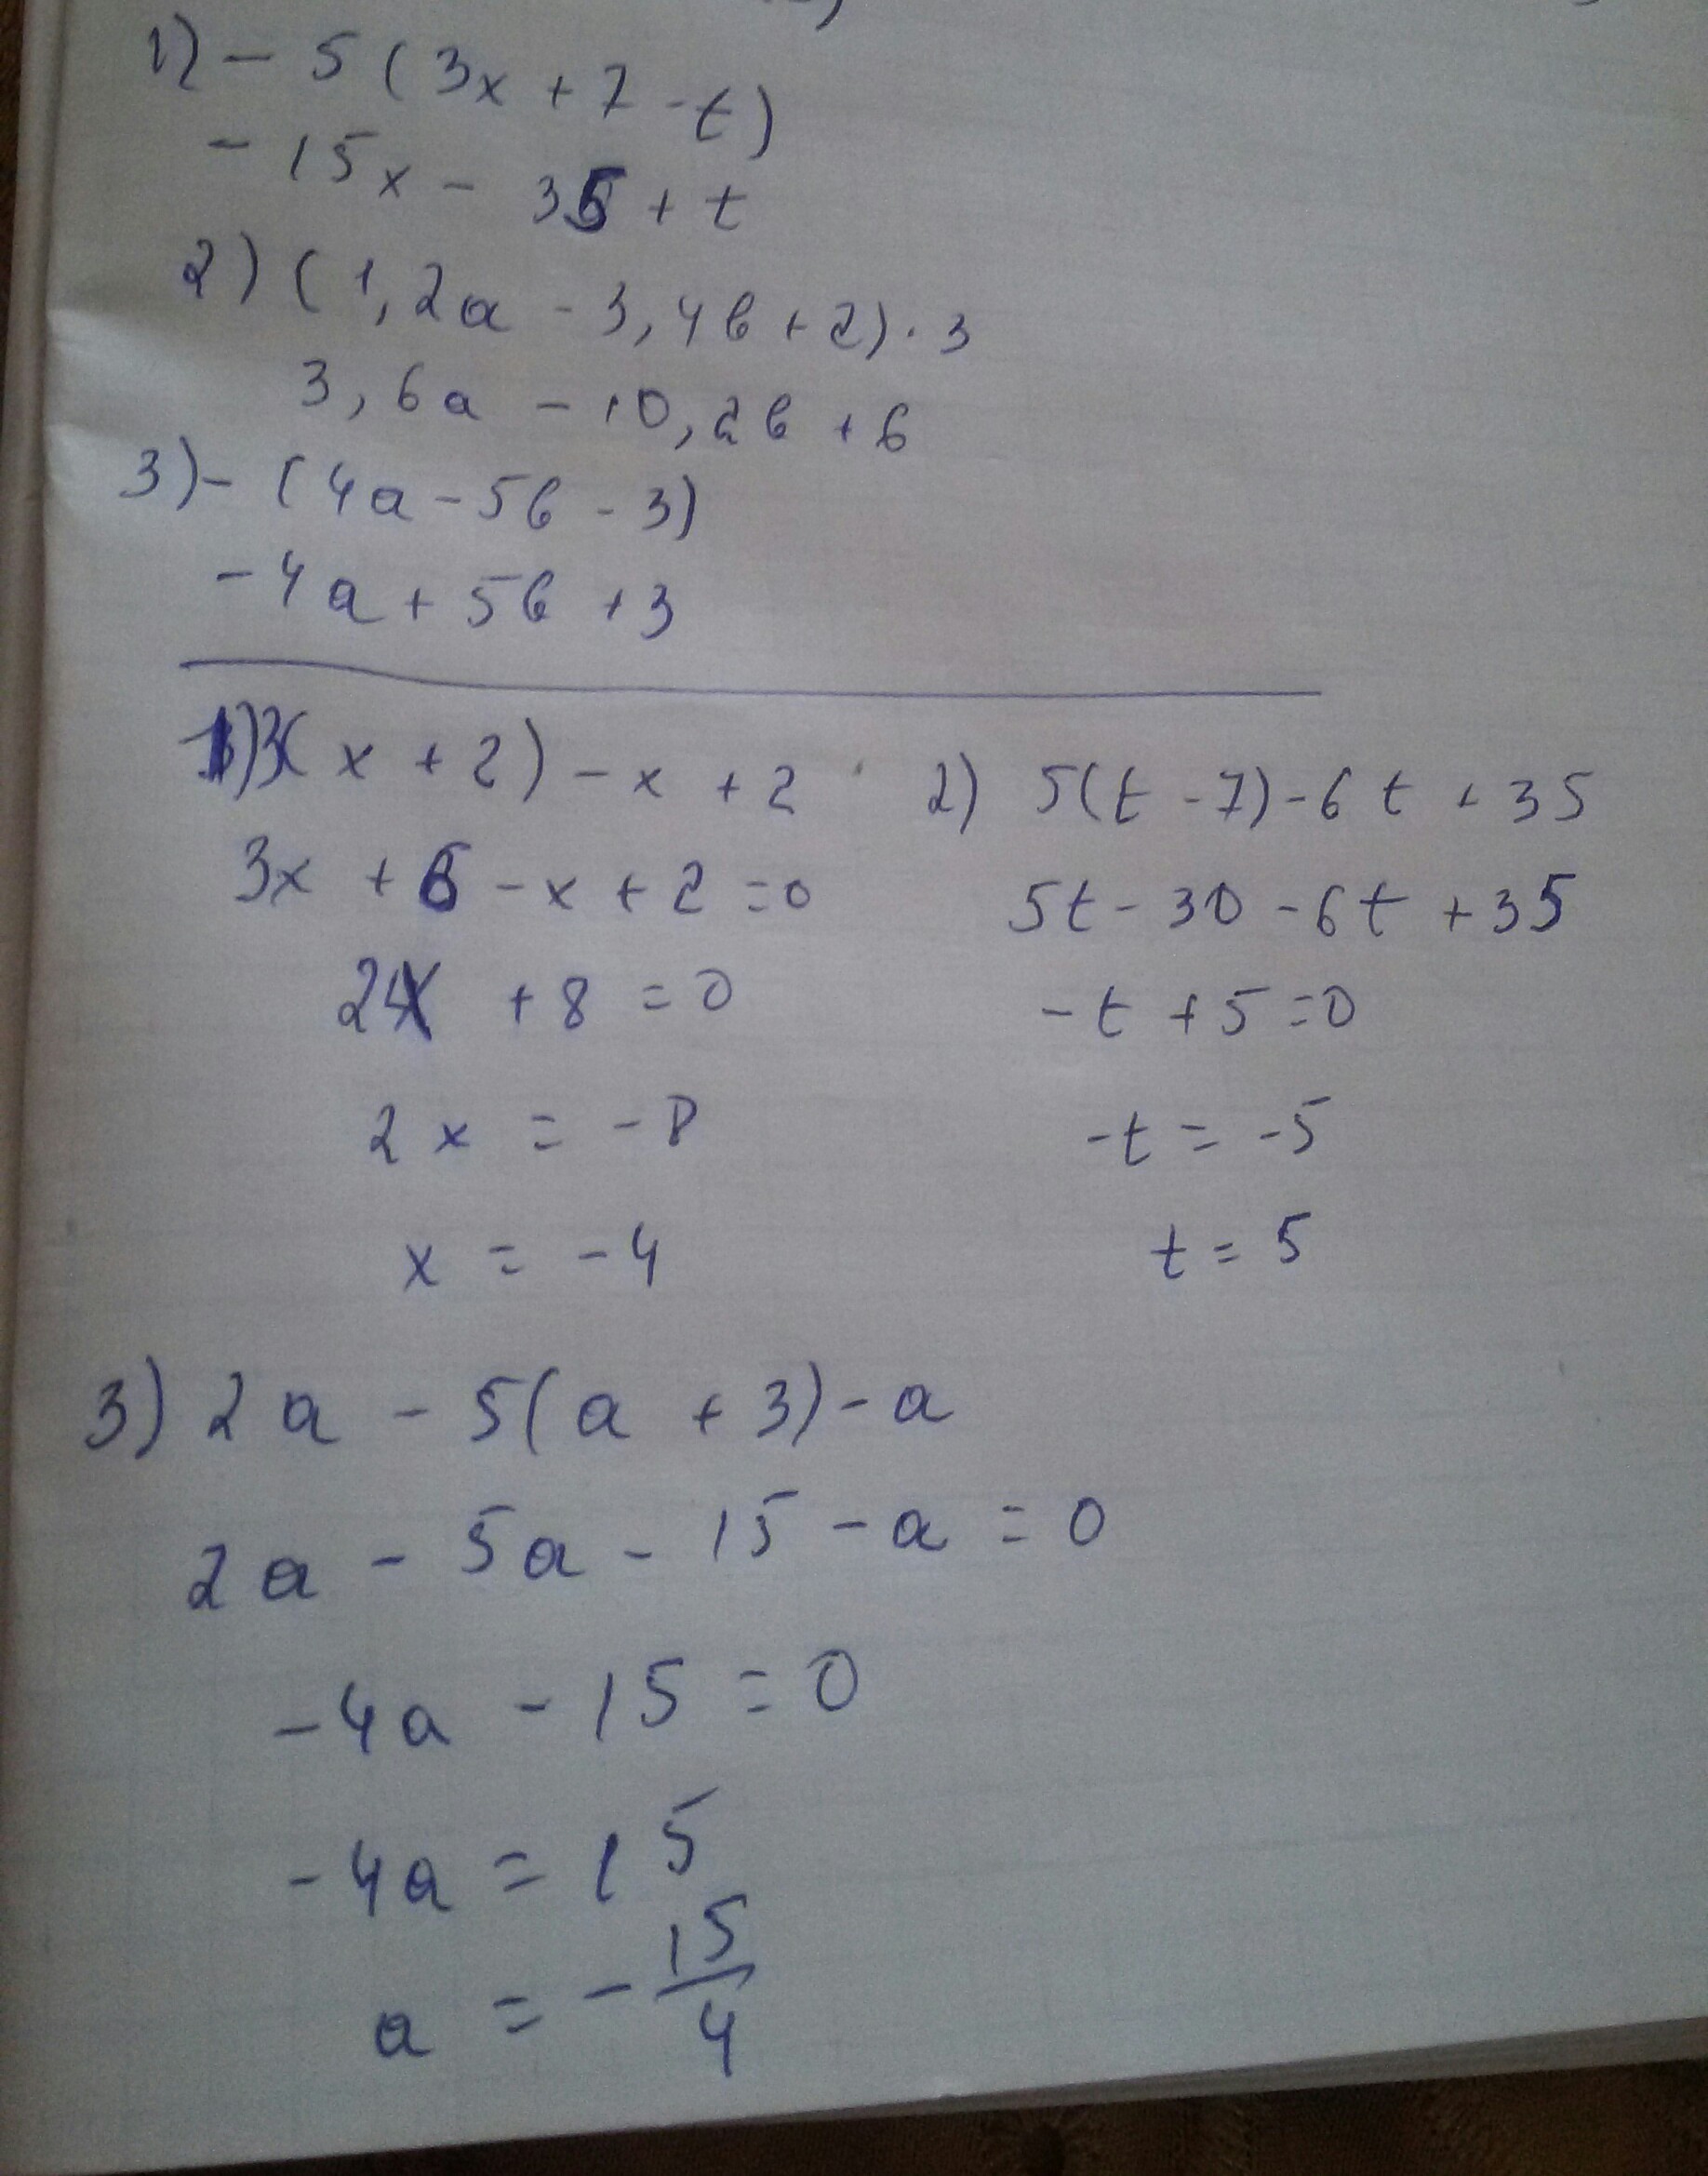 1) - 5 ( 3x + 7 - t )
- 15x - 35 + t
2) ( 1,2a - 3,4b + 2) · 3
3,6a - 10,2b + 6
3) - ( 4a - 5b - 3)
- 4a + 5b + 3
1) 3( x + 2 ) - x + 2
3x + 6 - x + 2 = 0
2x + 8 = 0
2x = - 8
x = - 4
2) 5(t - 7) - 6t + 35
5t - 30 - 6t + 35
- t + 5 = 0
- t = - 5
t = 5
3) 2a - 5(a + 3) - a
2a - 5a - 15 - a = 0
- 4a - 15 = 0
- 4a = 15
a = - 15/4